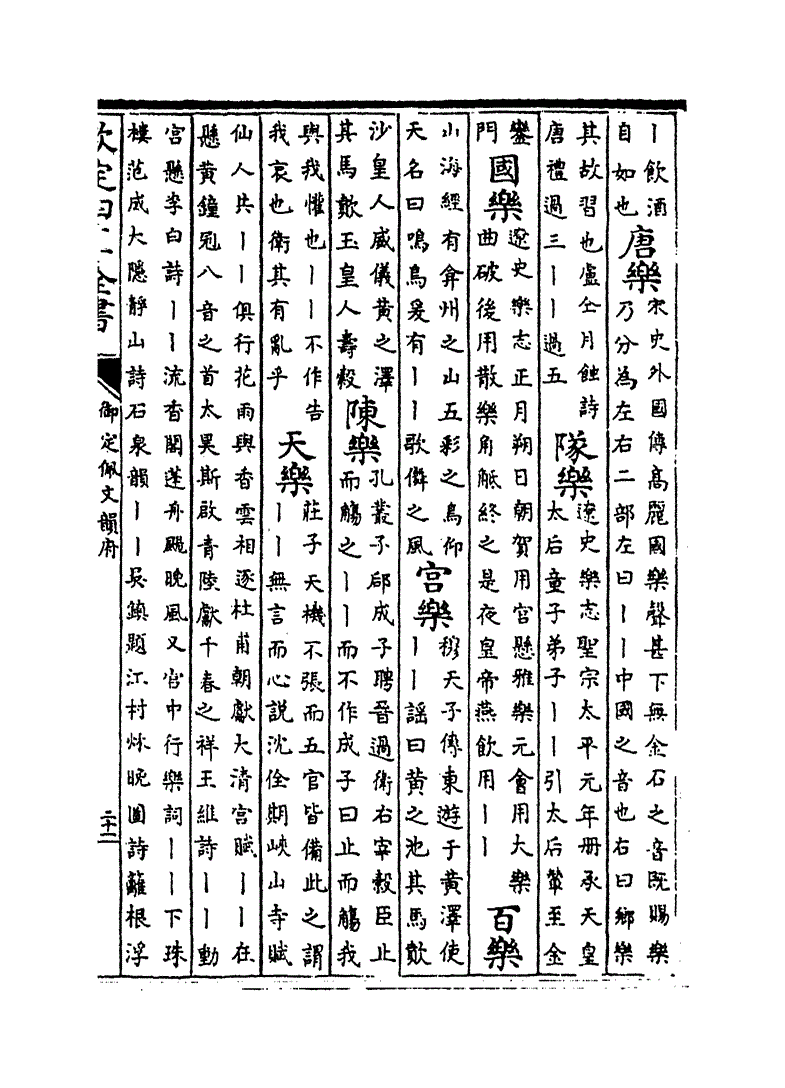 丨飲酒
自如也
唐樂
宋史外國傳高麗國樂聲甚下無金石之音既賜樂
乃分為左右二部左曰丨丨中國之音也右曰鄉樂
其故習也盧仝月蝕詩
唐禮過三丨丨過五
隊樂
遼史樂志聖宗太平元年册承天皇
太后童子弟子丨丨引太后輦至金
鑾
門
國樂
遼史樂志正月朔日朝賀用宮懸雅樂元會用大樂
曲破後用散樂角觝終之是夜皇帝燕飲用丨丨
百樂
山海經有弇州之山五彩之鳥仰
天名曰鳴鳥爰有丨丨歌儛之風
宮樂
穆天子傳東遊于黄澤使
丨丨謡曰黄之池其馬歕
沙皇人威儀黄之澤
其馬歕玉皇人壽穀
陳樂
孔叢子郈成子聘晉過衛右宰穀臣止
而觴之丨丨而不作成子曰止而觴我
與我懽也丨丨不作告
我哀也衛其有亂乎
天樂
莊子天機不張而五官皆備此之謂
丨丨無言而心說沈佺期峽山寺賦
仙人共丨丨俱行花雨與香雲相逐杜甫朝獻大清宮賦丨丨在
懸黄鐘冠八音之首太昊斯啟青陸獻千春之祥王維詩丨丨動
宮懸李白詩丨丨流香閣蓬舟颺晚風又宮中行樂詞丨丨下珠
樓范成大隱靜山詩石泉韻丨丨吳鎮題江村秋晚圖詩籬根浮
欽定四庫全書
御定佩文韻府
二十二